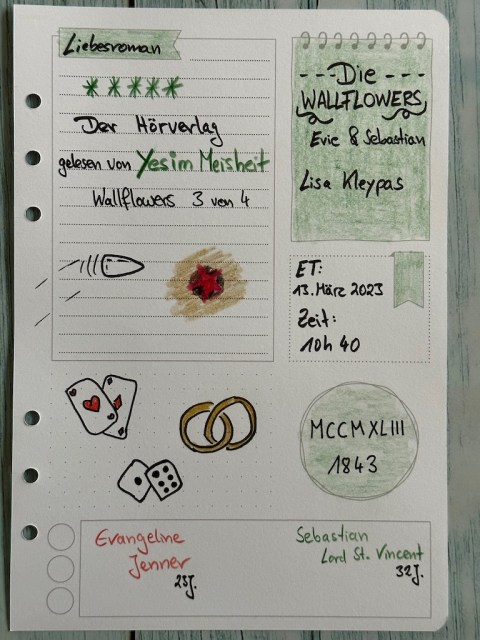 Liebesroman
* * * * *
Der Hörverlag
gelesen von Yesim Meisheit
Wallflowers 3 von 4
--- Die ---
WALLFLOWERS
Evie & Sebastian
Lisa Kleypas
ET:
13. März 2023
Zeit:
10h 40
MCCMXLIII
1843
Evangeline
Jenner
23J.
Sebastian
Lord St. Vincent
32J.